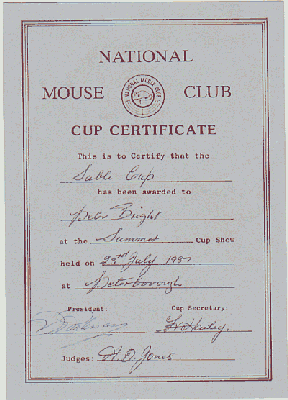 NATIONAL
MOUSE CLUB
CUP CERTIFICATE
This is to Certify that the
Sable Cup
has been awarded to
Peter Bright
at the Summer Cup Show
held on 23rd July
at Peterborough
President: Cup Secretary,
Judges: Jones